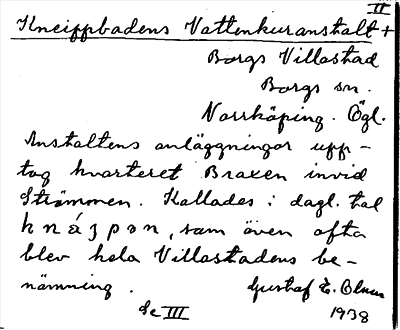 II
Kneippbadens Vattenkuranstalt +
Borgs Villastad
Borgs sn.
Norrköping. Ögl.
Anstaltens anläggningar upp-
tog kvarteret Braxen invid
Strömmen. Kallades i dagl. tal
, som även ofta
blev hela Villastadens be-
nämning.
Gustaf E.
Se III
1938